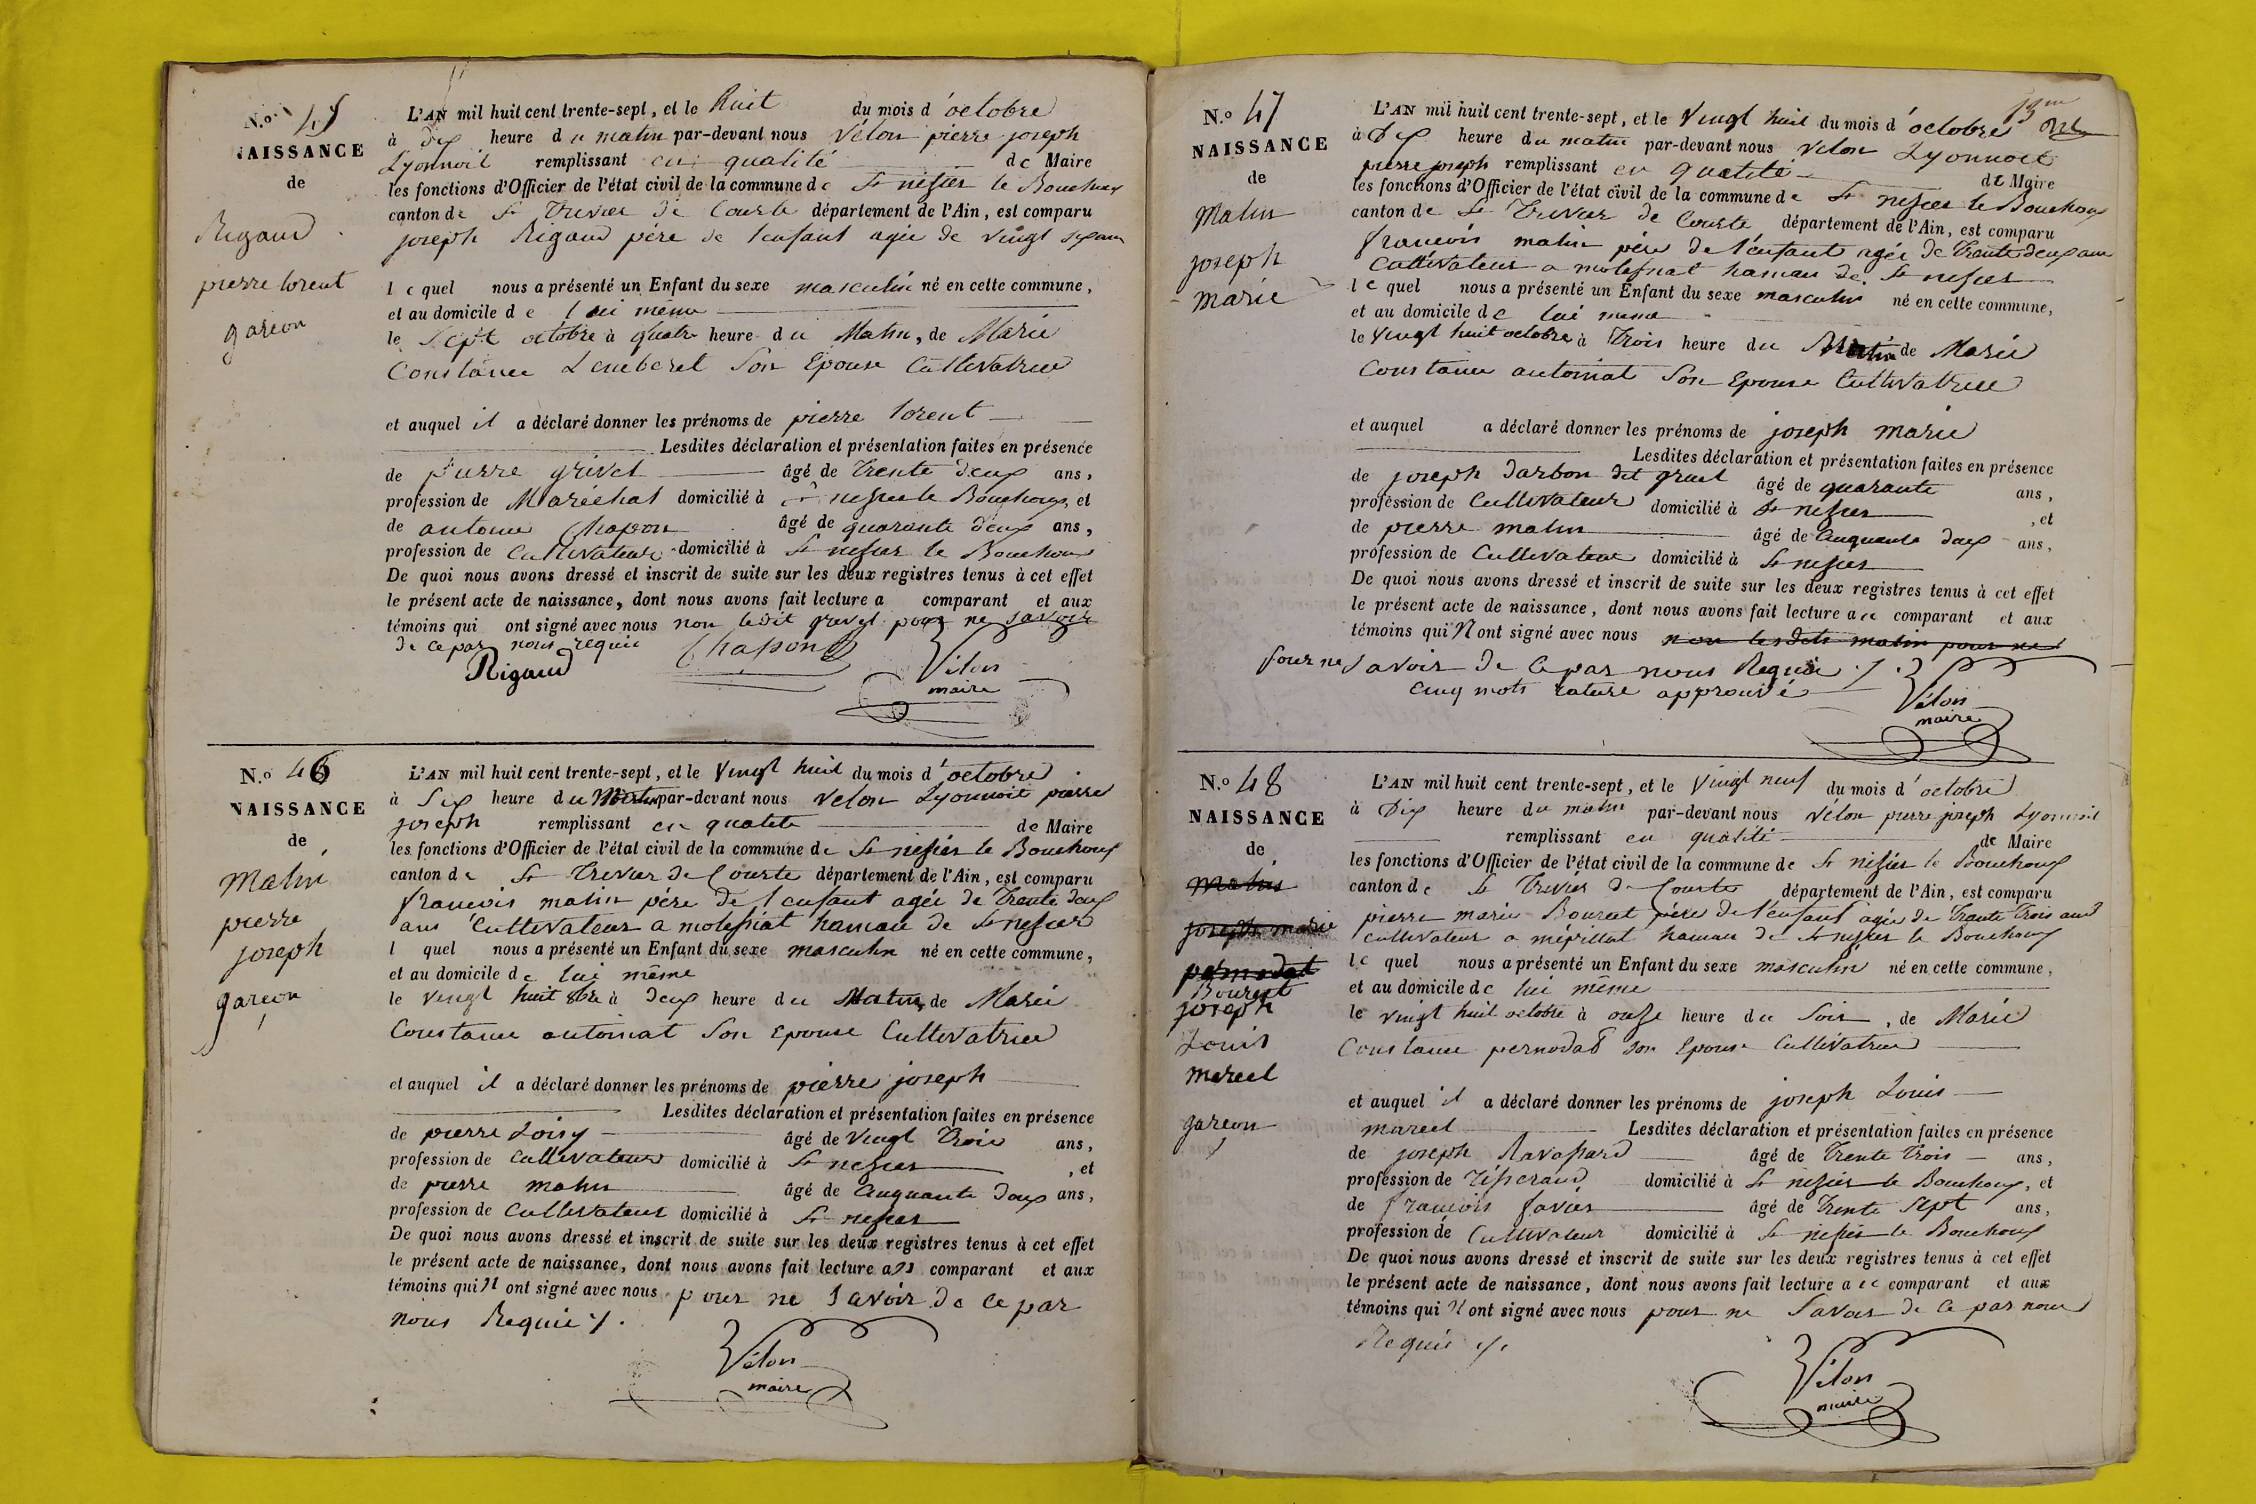 N.º 45
NAISSANCE
de
Rigaud
pierre lorent
garcon
L'AN mil huit cent trente-sept, et le huit du mois d'octobre
à dix heure du matin par-devant nous Vélon pierre joseph
Lyonnoit remplissant en qualité de Maire
les fonctions d'Officier de l'état civil de la commune de St nesier le Bouchoux
canton de St Trevier de Courte département de l'Ain, est comparu
joseph Rigaud pére de l'enfant agée de vingt six ans
le quel nous a présenté un Enfant du sexe masculin né en cette commune,
et au domicile de lui même
le Sept octobre à quatre heure du Matin, de Marie
Constance Son Epouse Cultivatrice
et auquel il a déclaré donner les prénoms de pierre lorent
Lesdites déclaration et présentation faites en présence
de pierre grivel âgé de trente deux ans,
profession de Maréchal domicilié à St nesier le Bouchoux, et
de antoine Chapon âgé de quarante deux ans,
profession de Cultivateur domicilié à St nesier le Bouchoux
De quoi nous avons dressé et inscrit de suite sur les deux registres tenus à cet effet
le présent acte de naissance, dont nous avons fait lecture a comparant et aux
témoins qui ont signé avec nous non ledit grevel pour ne savoir
de ce par nous requie
Rigaud Chapon Vélon
maire
N.º 46
NAISSANCE
de
Matin
pierre
joseph
garcon
L'AN mil huit cent trente-sept, et le Vingt huit du mois d'octobre
à Six heure du Matin par-devant nous Velon Lyonnoit pierre
joseph remplissant en qualité de Maire
les fonctions d'Officier de l'état civil de la commune de St nesier le Bouchoux
canton de St Trevier de Courte département de l'Ain, est comparu
francois matin pére de l'enfant agée de Trente deux
ans Cultivateur a molefsiat hamau de St nesier
l quel nous a présenté un Enfant du sexe masculin né en cette commune,
et au domicile de lui même
le vingt huit 8bre à deux heure du Matin, de Marie
Constance autoinat Son Epouse Cultivatrice
et auquel il a déclaré donner les prénoms de pierre joseph
Lesdites déclaration et présentation faites en présence
de pierre Loisy âgé de Vingt Trois ans,
profession de Cultivateur domicilié à St nesier, et
de pierre matin âgé de Cinquante deux ans,
profession de Cultivateur domicilié à St nesier
De quoi nous avons dressé et inscrit de suite sur les deux registres tenus à cet effet
le présent acte de naissance, dont nous avons fait lecture au comparant et aux
témoins qui n ont signé avec nous pour ne Savoir de ce par
nous Requie
Vélon
maire
N.º 47
NAISSANCE
de
Matin
joseph
marie
L'AN mil huit cent trente-sept, et le Vingt huit du mois d'octobre
à Dix heure du matin par-devant nous Velon Lyonnoit
pierre joseph remplissant en qualité de Maire
les fonctions d'Officier de l'état civil de la commune de St nesier le Bouchoux
canton de St Trevier de Courte département de l'Ain, est comparu
francois matin pére de l'enfant agée de Trente deux ans
Cultivateur a molefsiat hamau de St nesier
le quel nous a présenté un Enfant du sexe masculin né en cette commune,
et au domicile de lui meme
le Vingt huit octobre à Trois heure du Matin de Marie
Constance autoinat Son Epouse Cultivatrice
et auquel a déclaré donner les prénoms de joseph marie
Lesdites déclaration et présentation faites en présence
de joseph darbon dit âgé de quarante ans,
profession de Cultivateur domicilié à St nesier, et
de pierre matin âgé de Cinquante deux ans,
profession de Cultivateur domicilié à St nesier
De quoi nous avons dressé et inscrit de suite sur les deux registres tenus à cet effet
le présent acte de naissance, dont nous avons fait lecture au comparant et aux
témoins qui n ont signé avec nous non lesdits matin pour ne
pour ne Savoir de ce par nous Requie
cinq mots rature approuvé
Vélon
maire
N.º 48
NAISSANCE
de
Matin
joseph marie
pernodat
Bourcet
joseph
Louis
marcel
garcon
L'AN mil huit cent trente-sept, et le Vingt neuf du mois d'octobre
à Dix heure du matin par-devant nous Vélon pierre joseph Lyonnoit
remplissant en qualité de Maire
les fonctions d'Officier de l'état civil de la commune de St nesier le Bouchoux
canton de St Trevier de Courte département de l'Ain, est comparu
pierre marie Bourcet pére de l'enfant agée de Trente Trois ans
cultivateur a mépillat hamau de St nesier le Bouchoux
le quel nous a présenté un Enfant du sexe masculin né en cette commune,
et au domicile de lui même
le vingt huit octobre à onze heure du Soir, de Marie
Constance pernodat son Epouse Cultivatrice
et auquel il a déclaré donner les prénoms de joseph Louis
marcel Lesdites déclaration et présentation faites en présence
de joseph Ravassard âgé de Trente Trois ans,
profession de Tisserand domicilié à St nesier le Bouchoux, et
de francois favier âgé de Trente Sept ans,
profession de Cultivateur domicilié à St nesier le Bouchoux
De quoi nous avons dressé et inscrit de suite sur les deux registres tenus à cet effet
le présent acte de naissance, dont nous avons fait lecture a ce comparant et aux
témoins qui n ont signé avec nous pour ne Savoir de ce par nous
Requie
Vélon
maire